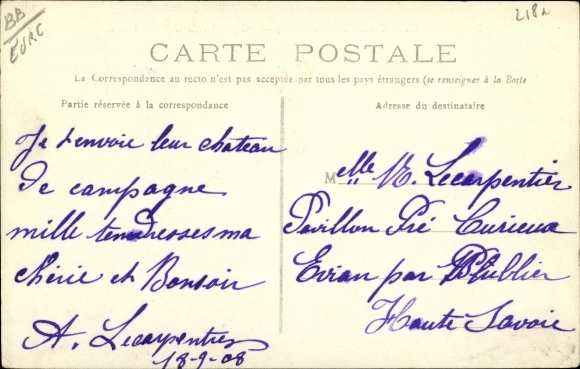 BB
EURE
218
CARTE POSTALE
La Correspondance au recto n'est pas acceptée par tous les pays étrangers (se renseigner à la Poste
Partie réservée à la correspondance
Je t'envoie leur chateau
de campagne
mille tendresses ma
chérie et Bonsoir
A. Lecarpentier
18-9-08
Adresse du destinataire
Melle M. Lecarpentier
Pavillon Pré Curieux
Evian par Publier
Haute Savoie